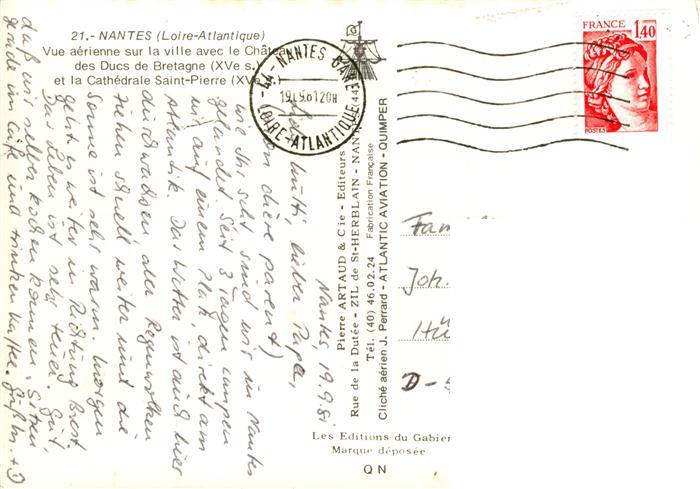 21.- NANTES (Loire-Atlantique)
Vue aérienne sur la ville avec le Château
des Ducs de Bretagne (XVe s.)
et la Cathédrale Saint-Pierre (XVe
44 - NANTES GARE
19-9-81 20H
LOIRE-ATLANTIQUE
FRANCE
1,40
POSTES
Nantes, 19.9.81
Mutti, lieber Papa,
(chère parent)
wie Ihr seht sind wir in Nantes
gelandet. Seit 3 Tagen campen
wir auf einem Platz direkt am
Atlantik. Das Wetter ist auch hier
durchwachsen aber Regenwolken
ziehen schnell weiter und die
Sonne ist sehr warm. Morgen
geht's weiter in Richtung Brest
Das Leben ist sehr teuer. Gut,
daß wir selber kochen können. Sitzen
gerade im Café und trinken Kaffee. Gruß
Pierre ARTAUD & Cie - Editeurs
Rue de la Dutée - ZIL de St-HERBLAIN - NANTES (44)
Tél. (40) 46.02.24 Fabrication Française
Cliché aérien J. Perrard - ATLANTIC AVIATION - QUIMPER
Fam
Joh.
Hü
D-
Les Editions du Gabier
Marque déposée
QN